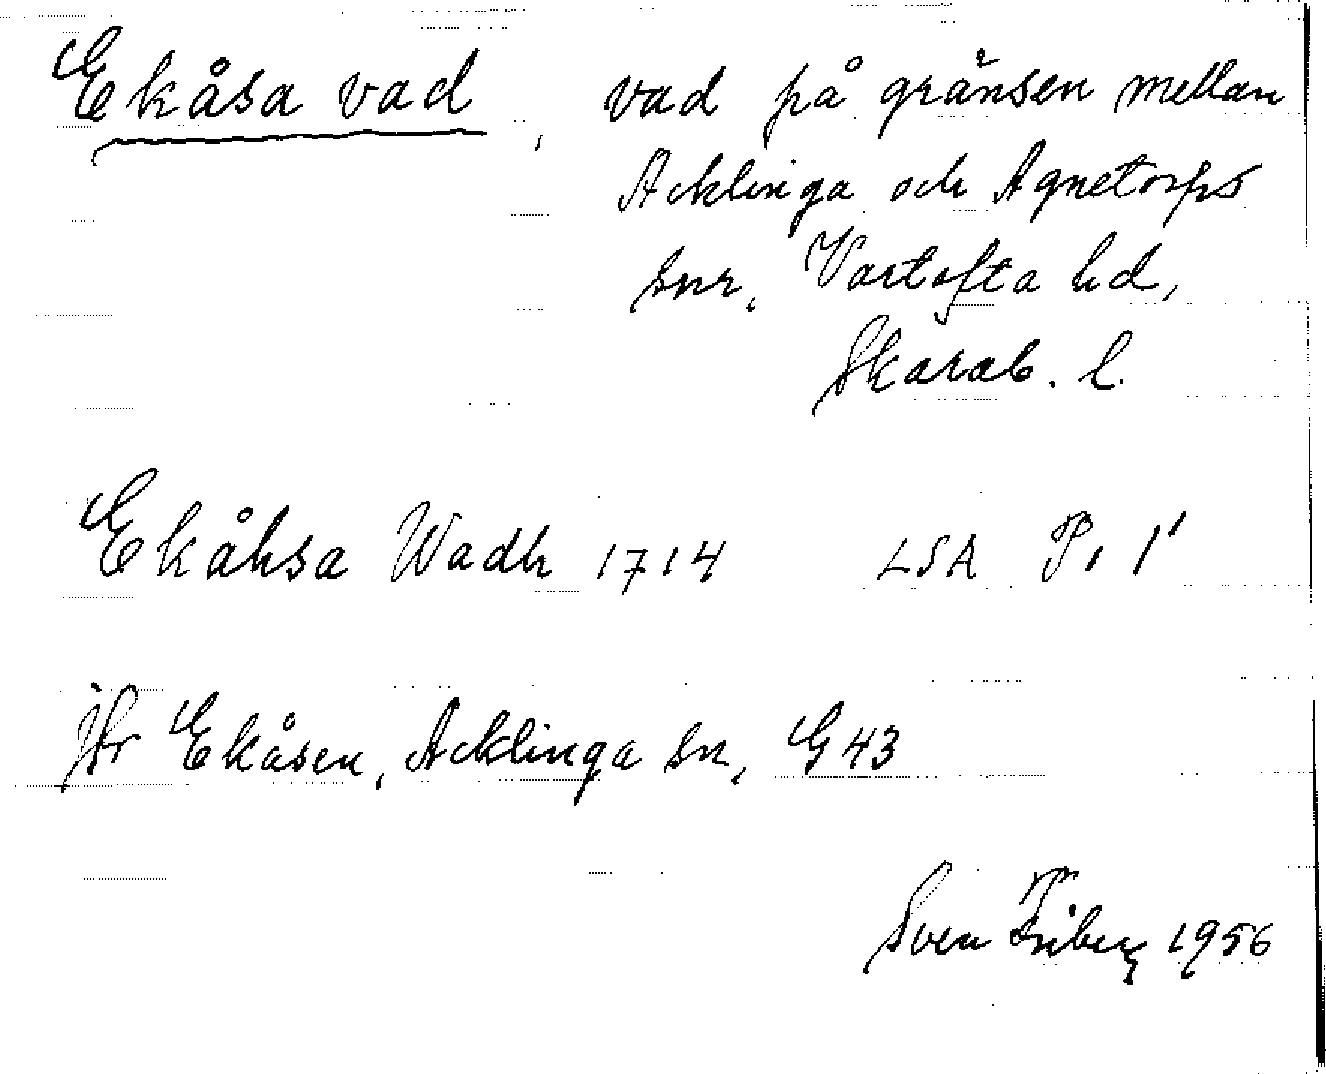 Ekåsa vad, vad på gränsen mellan
Acklinga och Agnetorps
snr, Vartofta hd,
Skarab. l.
Ekåhsa Wadh 1714 LSA P, 1'
Jfr Ekåsen, Acklinga sn, G 43
Sven Friberg 1956